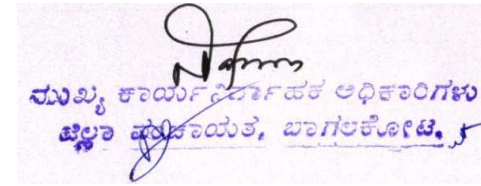 ಮುಖ್ಯ ಕಾರ್ಯನಿರ್ವಾಹಕ ಅಧಿಕಾರಿಗಳು
ಜಿಲ್ಲಾ ಪಂಚಾಯತ, ಬಾಗಲಕೋಟೆ.